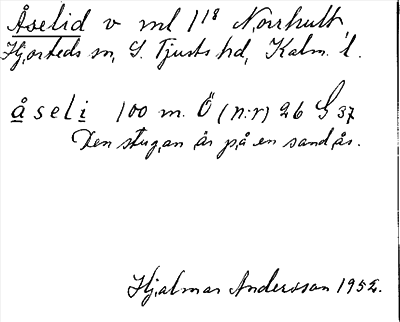 Åselid v ml 1/18 Norrhult
Hjorteds sn, S. Tjusts hd, Kalm. l.
åseli 100 m. Ö (n:r) 26 G 37
Den stugan är på en sandås.
Hjalmar Andersson 1952.